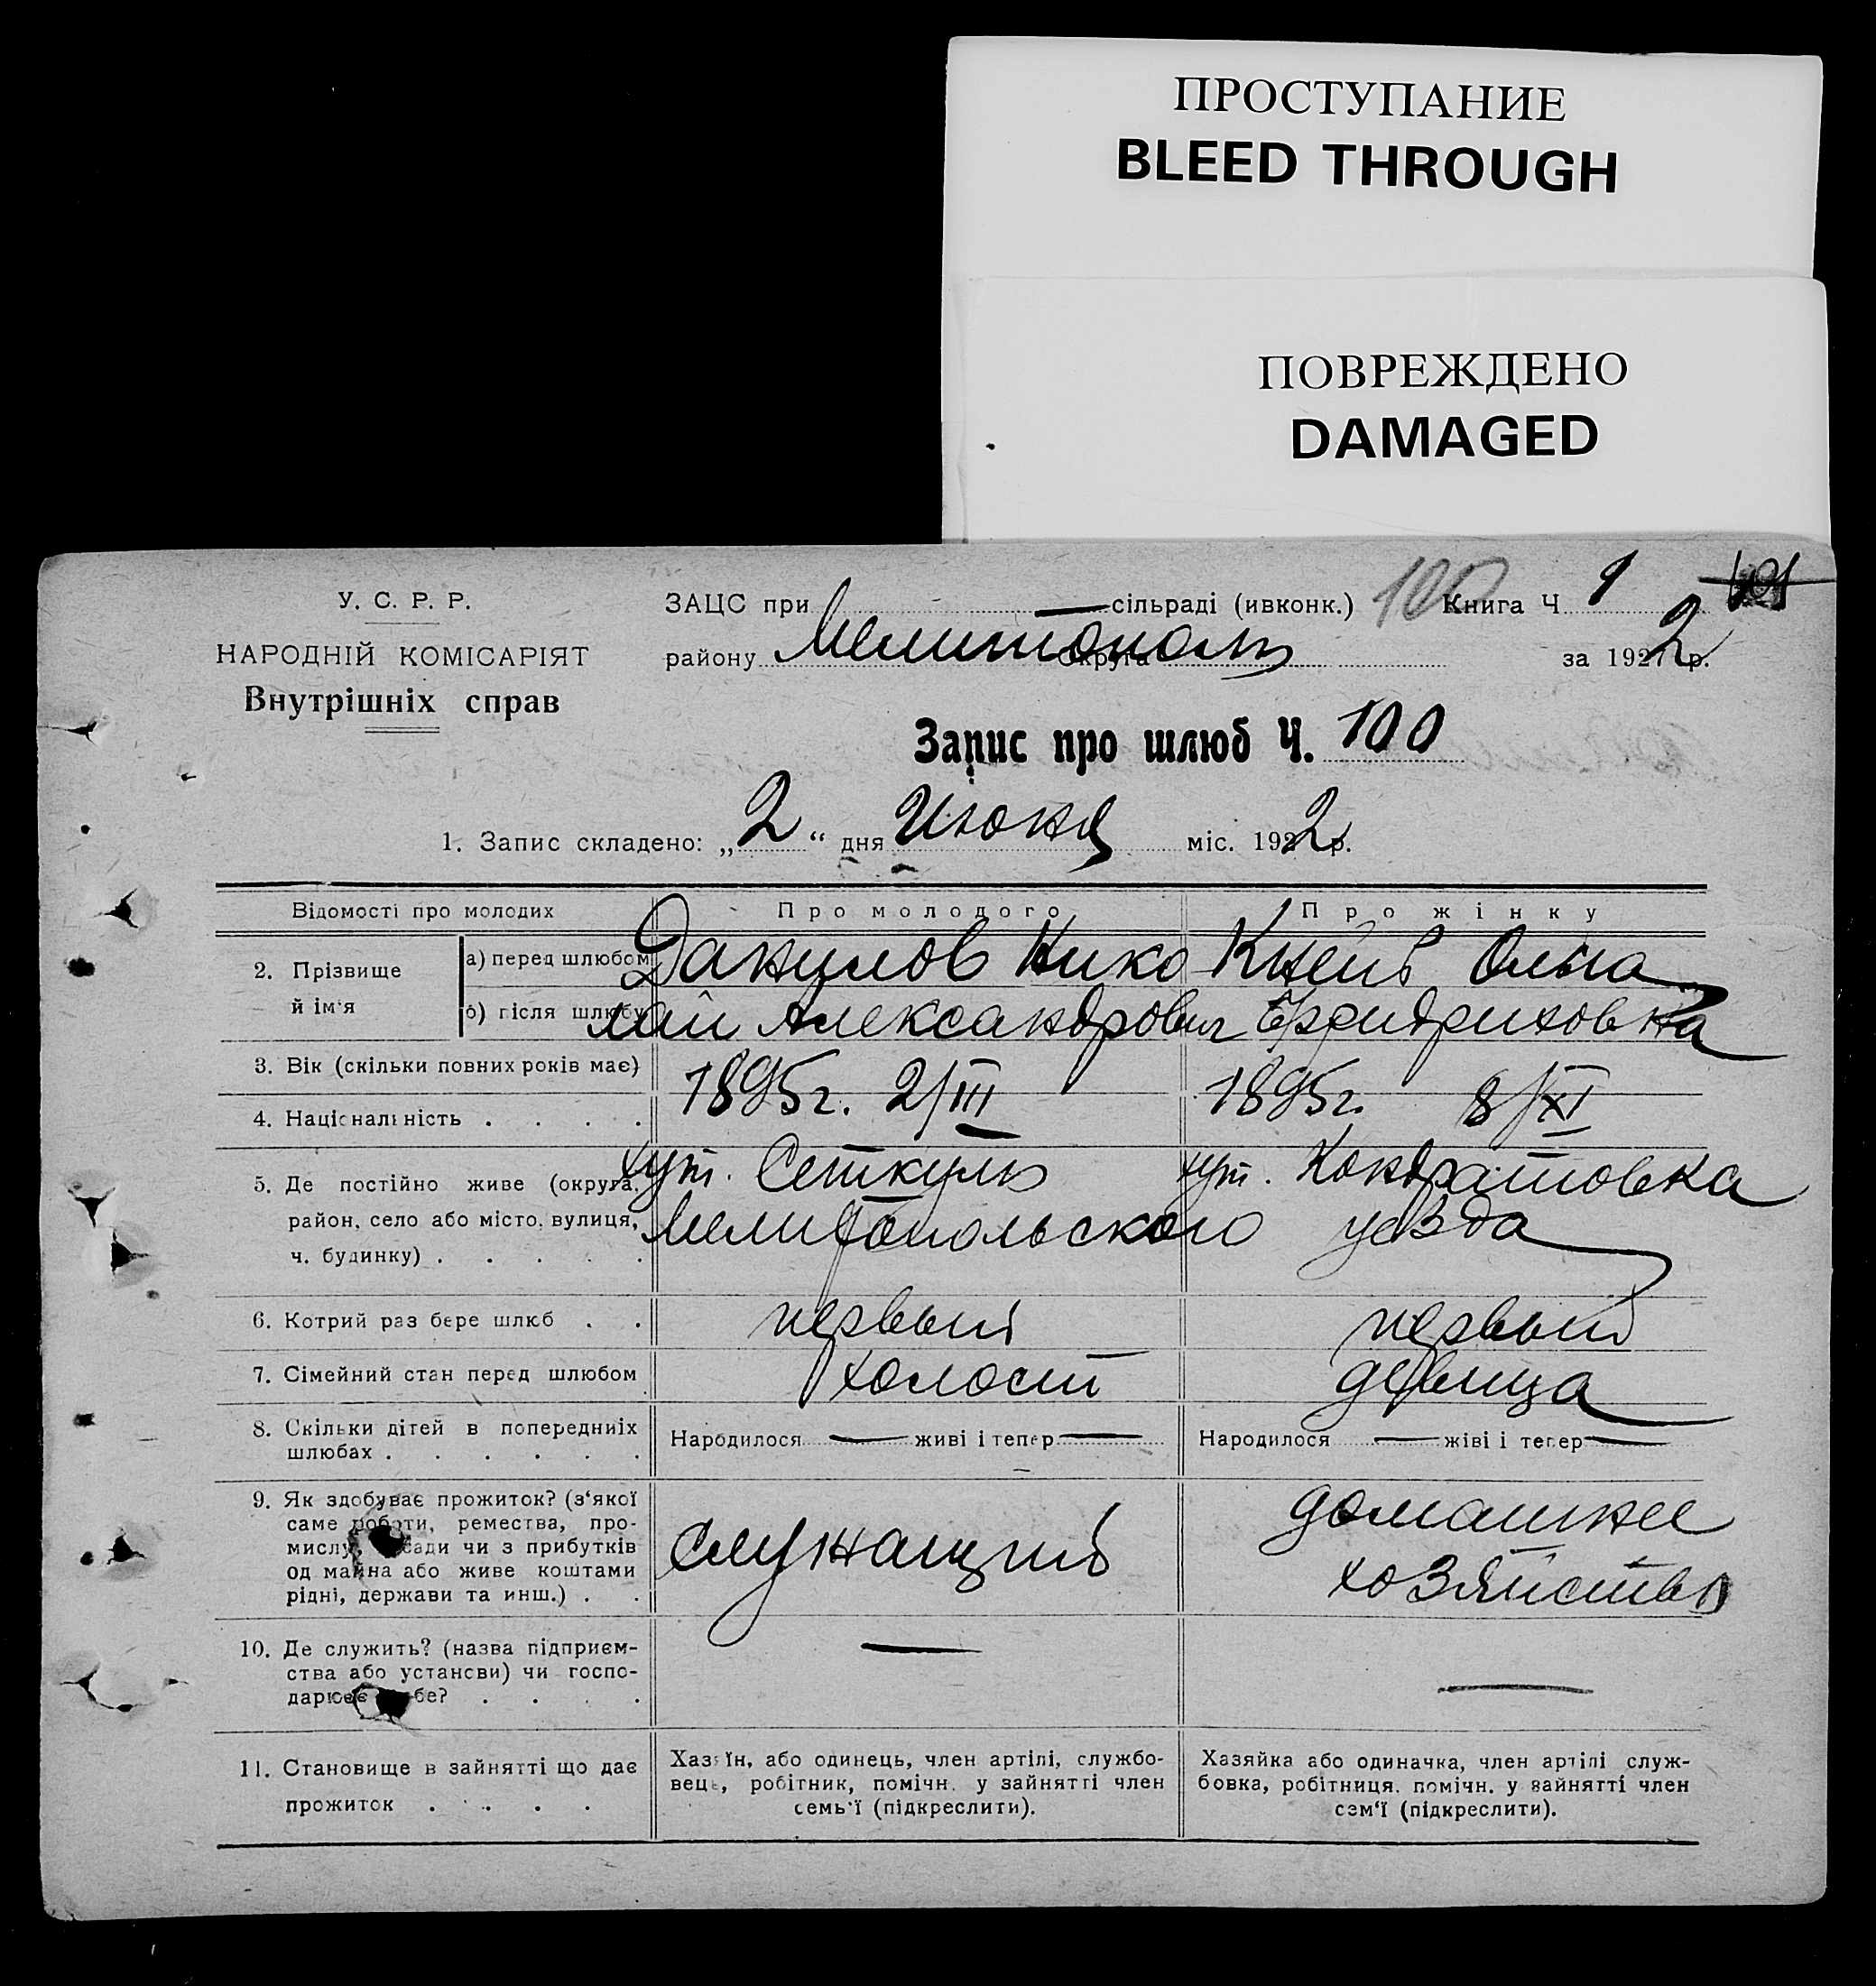 ПРОСТУПАНИЕ
BLEED THROUGH
ПОВРЕЖДЕНО
DAMAGED
У. С. Р. Р.
НАРОДНІЙ КОМІСАРІЯТ
Внутрішніх справ
ЗАЦС при — сільраді (ивконк.) 100 Книга Ч 1
району Мелитополь Округа за 1922 р.
Запис про шлюб Ч. 100
1. Запис складено: „2“ дня Июня міс. 1922 р.
Відомості про молодих
Про молодого
Про жінку
2. Прізвище й ім'я
а) перед шлюбом
б) після шлюбу
Данилов Нико
лай Александрович
Ольга
Фридриховна
3. Вік (скільки повних років має)
4. Національність . . . .
1895г. 2/III
1895г. 8/XI
5. Де постійно живе (округа,
район, село або місто, вулиця,
ч. будинку) . . . . .
хут. Сеткуль
хут. Кондратовка
Мелитопольского уезда
6. Котрий раз бере шлюб . .
первый
первый
7. Сімейний стан перед шлюбом
холост
девица
8. Скільки дітей в попередниіх
шлюбах . . . . . .
Народилося — живі і тепер —
Народилося — жіві і тепер —
9. Як здобуває прожиток? (з'якої
саме роботи, ремества, про-
мислу, сади чи з прибутків
од майна або живе коштами
рідні, держави та инш.) . .
служащий
домашнее
хозяйство
10. Де служить? (назва підприєм-
ства або установи) чи госпо-
дарює бе? . . . .
—
—
11. Становище в зайнятті що дає
прожиток . . . .
Хазяїн, або одинець, член артілі, службо-
вець, робітник, помічн. у зайнятті член
семь'ї (підкреслити).
Хазяйка або одиначка, член артілі служ-
бовка, робітниця, помічн. у зайнятті член
сем'ї (підкреслити).